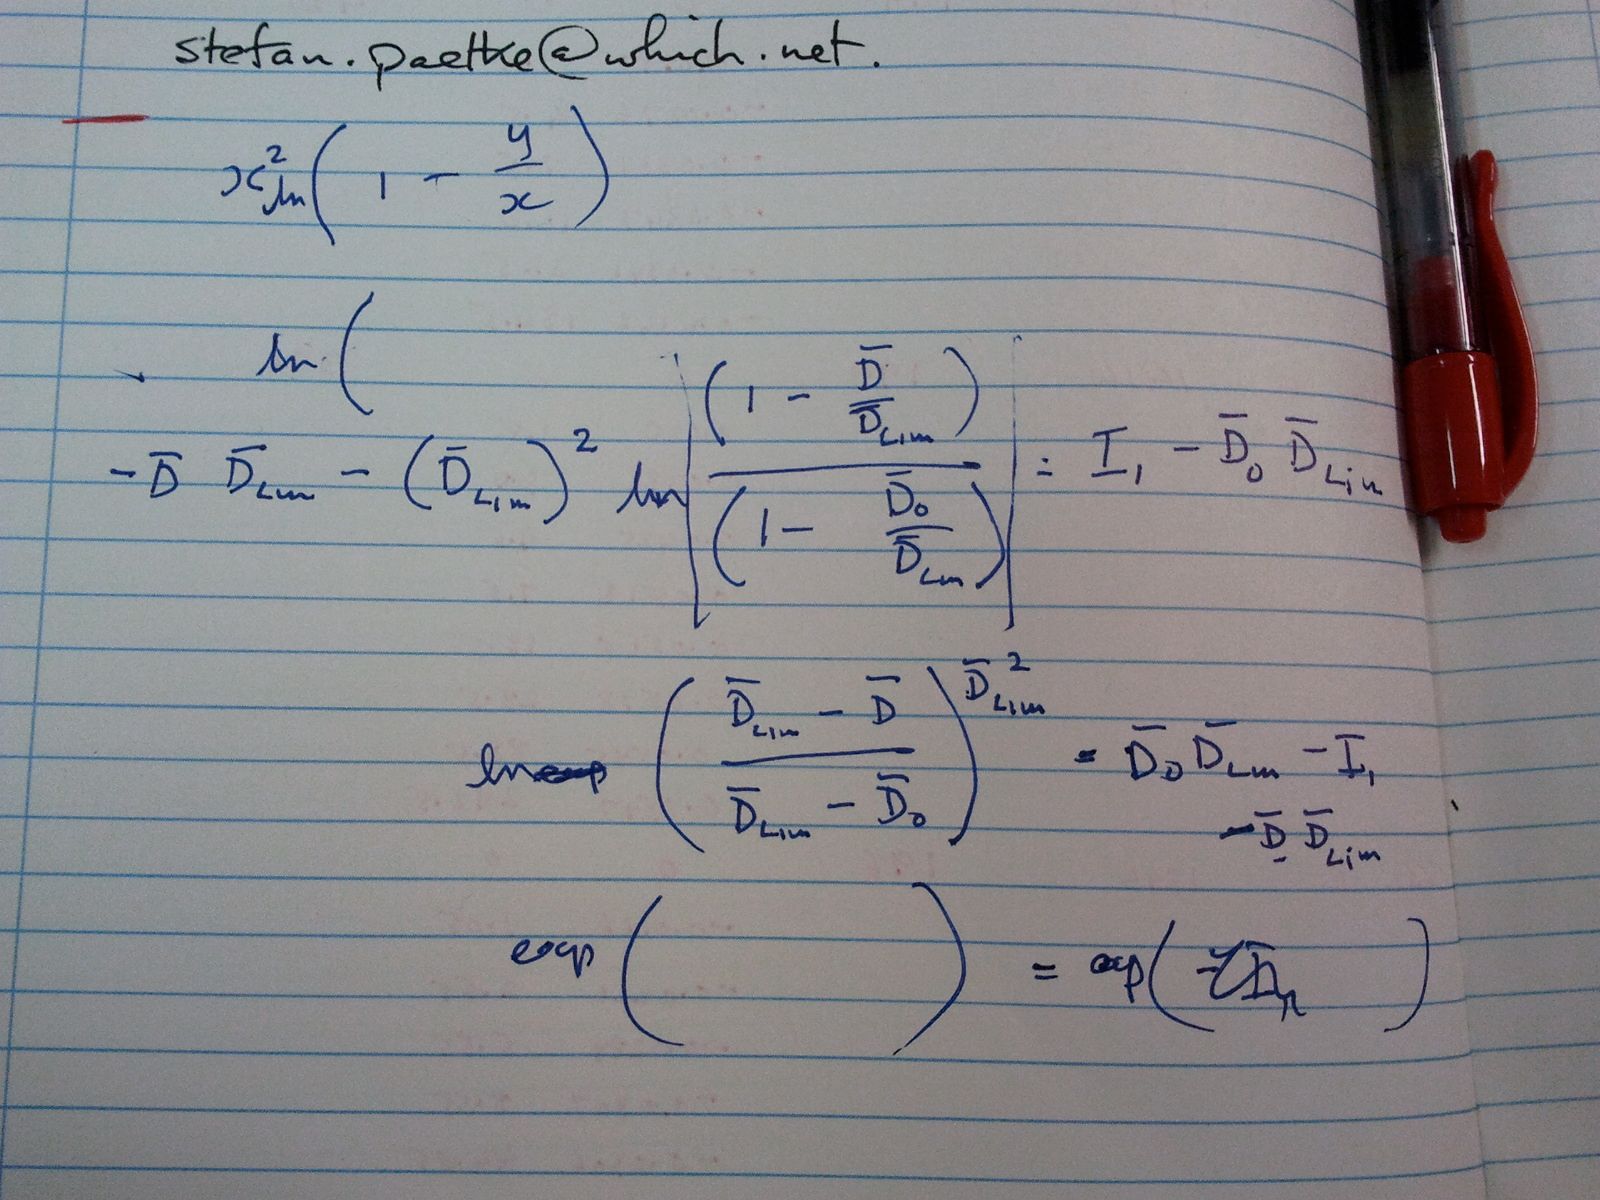 stefan.paetke@which.net.
x² ln( 1 - y/x )
ln (
- D̄ D̄Lim - (D̄Lim)² ln | (1 - D̄/D̄Lim) / (1 - D̄₀/D̄Lim) | = I₁ - D̄₀ D̄Lim
ln ( (D̄Lim - D̄) / (D̄Lim - D̄₀) )^D̄Lim² = D̄₀ D̄Lim - I₁
- D̄ D̄Lim
exp ( ) = exp ( )